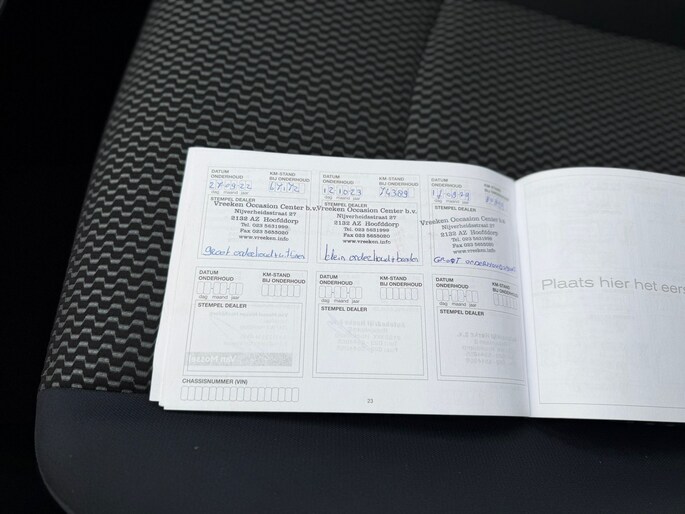 DATUM ONDERHOUD KM-STAND BIJ ONDERHOUD
27-09-22
dag maand jaar
STEMPEL DEALER
Vreeken Occasion Center b.v.
Nijverheidsstraat 27
2132 AZ Hoofddorp
Tel. 023 5651999
Fax 023 5655050
www.vreeken.info
groot onderhoud
DATUM ONDERHOUD KM-STAND BIJ ONDERHOUD
12 10 23 74389
dag maand jaar
STEMPEL DEALER
Vreeken Occasion Center b.v.
Nijverheidsstraat 27
2132 AZ Hoofddorp
Tel. 023 5651999
Fax 023 5655050
www.vreeken.info
klein onderhoud + banden
DATUM ONDERHOUD KM-STAND BIJ ONDERHOUD
dag maand jaar
STEMPEL DEALER
Vreeken Occasion Center b.v.
Nijverheidsstraat 27
2132 AZ Hoofddorp
Tel. 023 5651999
Fax 023 5655050
www.vreeken.info
Groot onderhoud
DATUM ONDERHOUD KM-STAND BIJ ONDERHOUD
dag maand jaar
STEMPEL DEALER
DATUM ONDERHOUD KM-STAND BIJ ONDERHOUD
dag maand jaar
STEMPEL DEALER
DATUM ONDERHOUD KM-STAND BIJ ONDERHOUD
dag maand jaar
STEMPEL DEALER
CHASSISNUMMER (VIN)
33
Plaats hier het eers